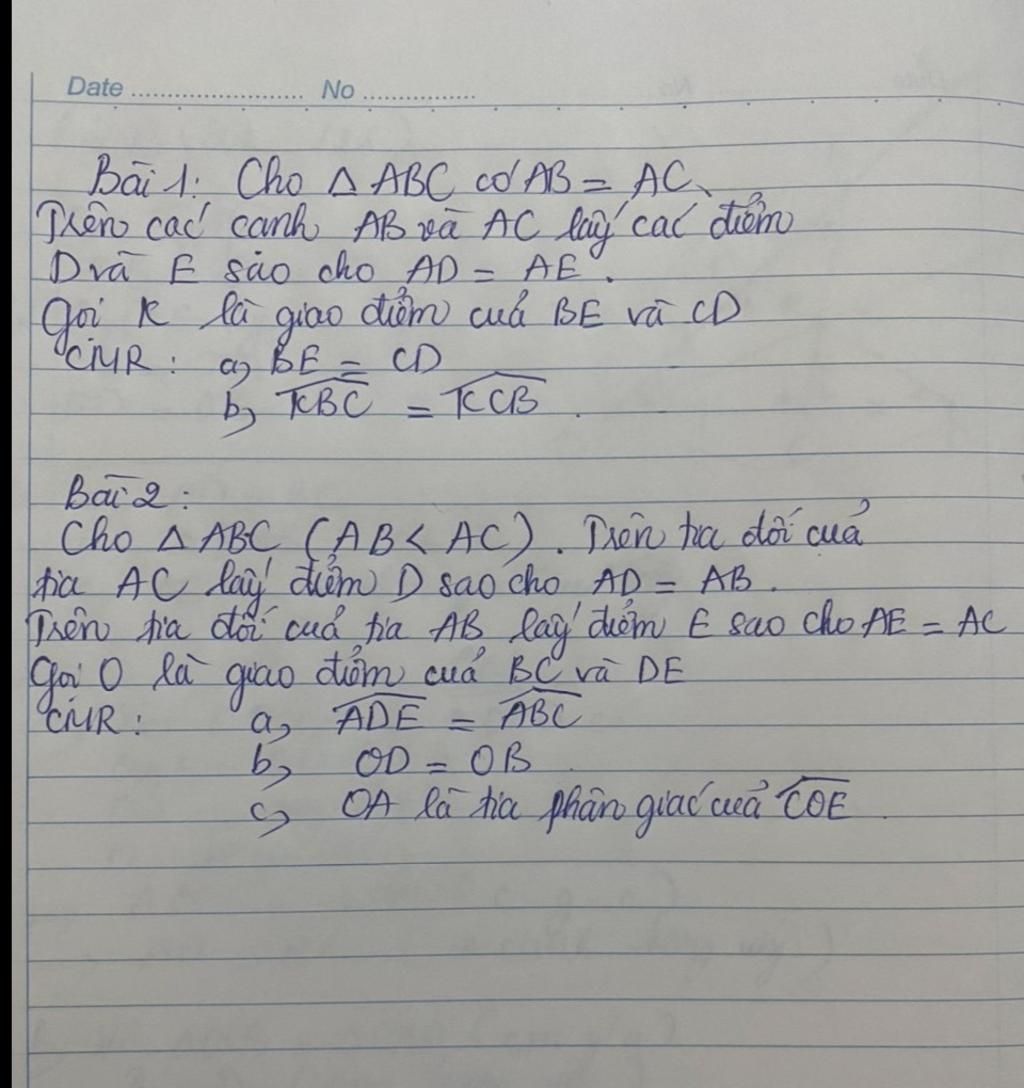 Date ........................ No ................
Bài 1: Cho △ ABC có AB = AC.
Trên các cạnh AB và AC lấy các điểm
D và E sao cho AD = AE.
Gọi K là giao điểm của BE và CD
CMR : a, BE = CD
b, \widehat{KBC} = \widehat{KCB}.
Bài 2 :
Cho △ ABC (AB < AC). Trên tia đối của
tia AC lấy điểm D sao cho AD = AB.
Trên tia đối của tia AB lấy điểm E sao cho AE = AC
Gọi O là giao điểm của BC và DE
CMR : a, \widehat{ADE} = \widehat{ABC}
b, OD = OB.
c, OA là tia phân giác của \widehat{COE}.